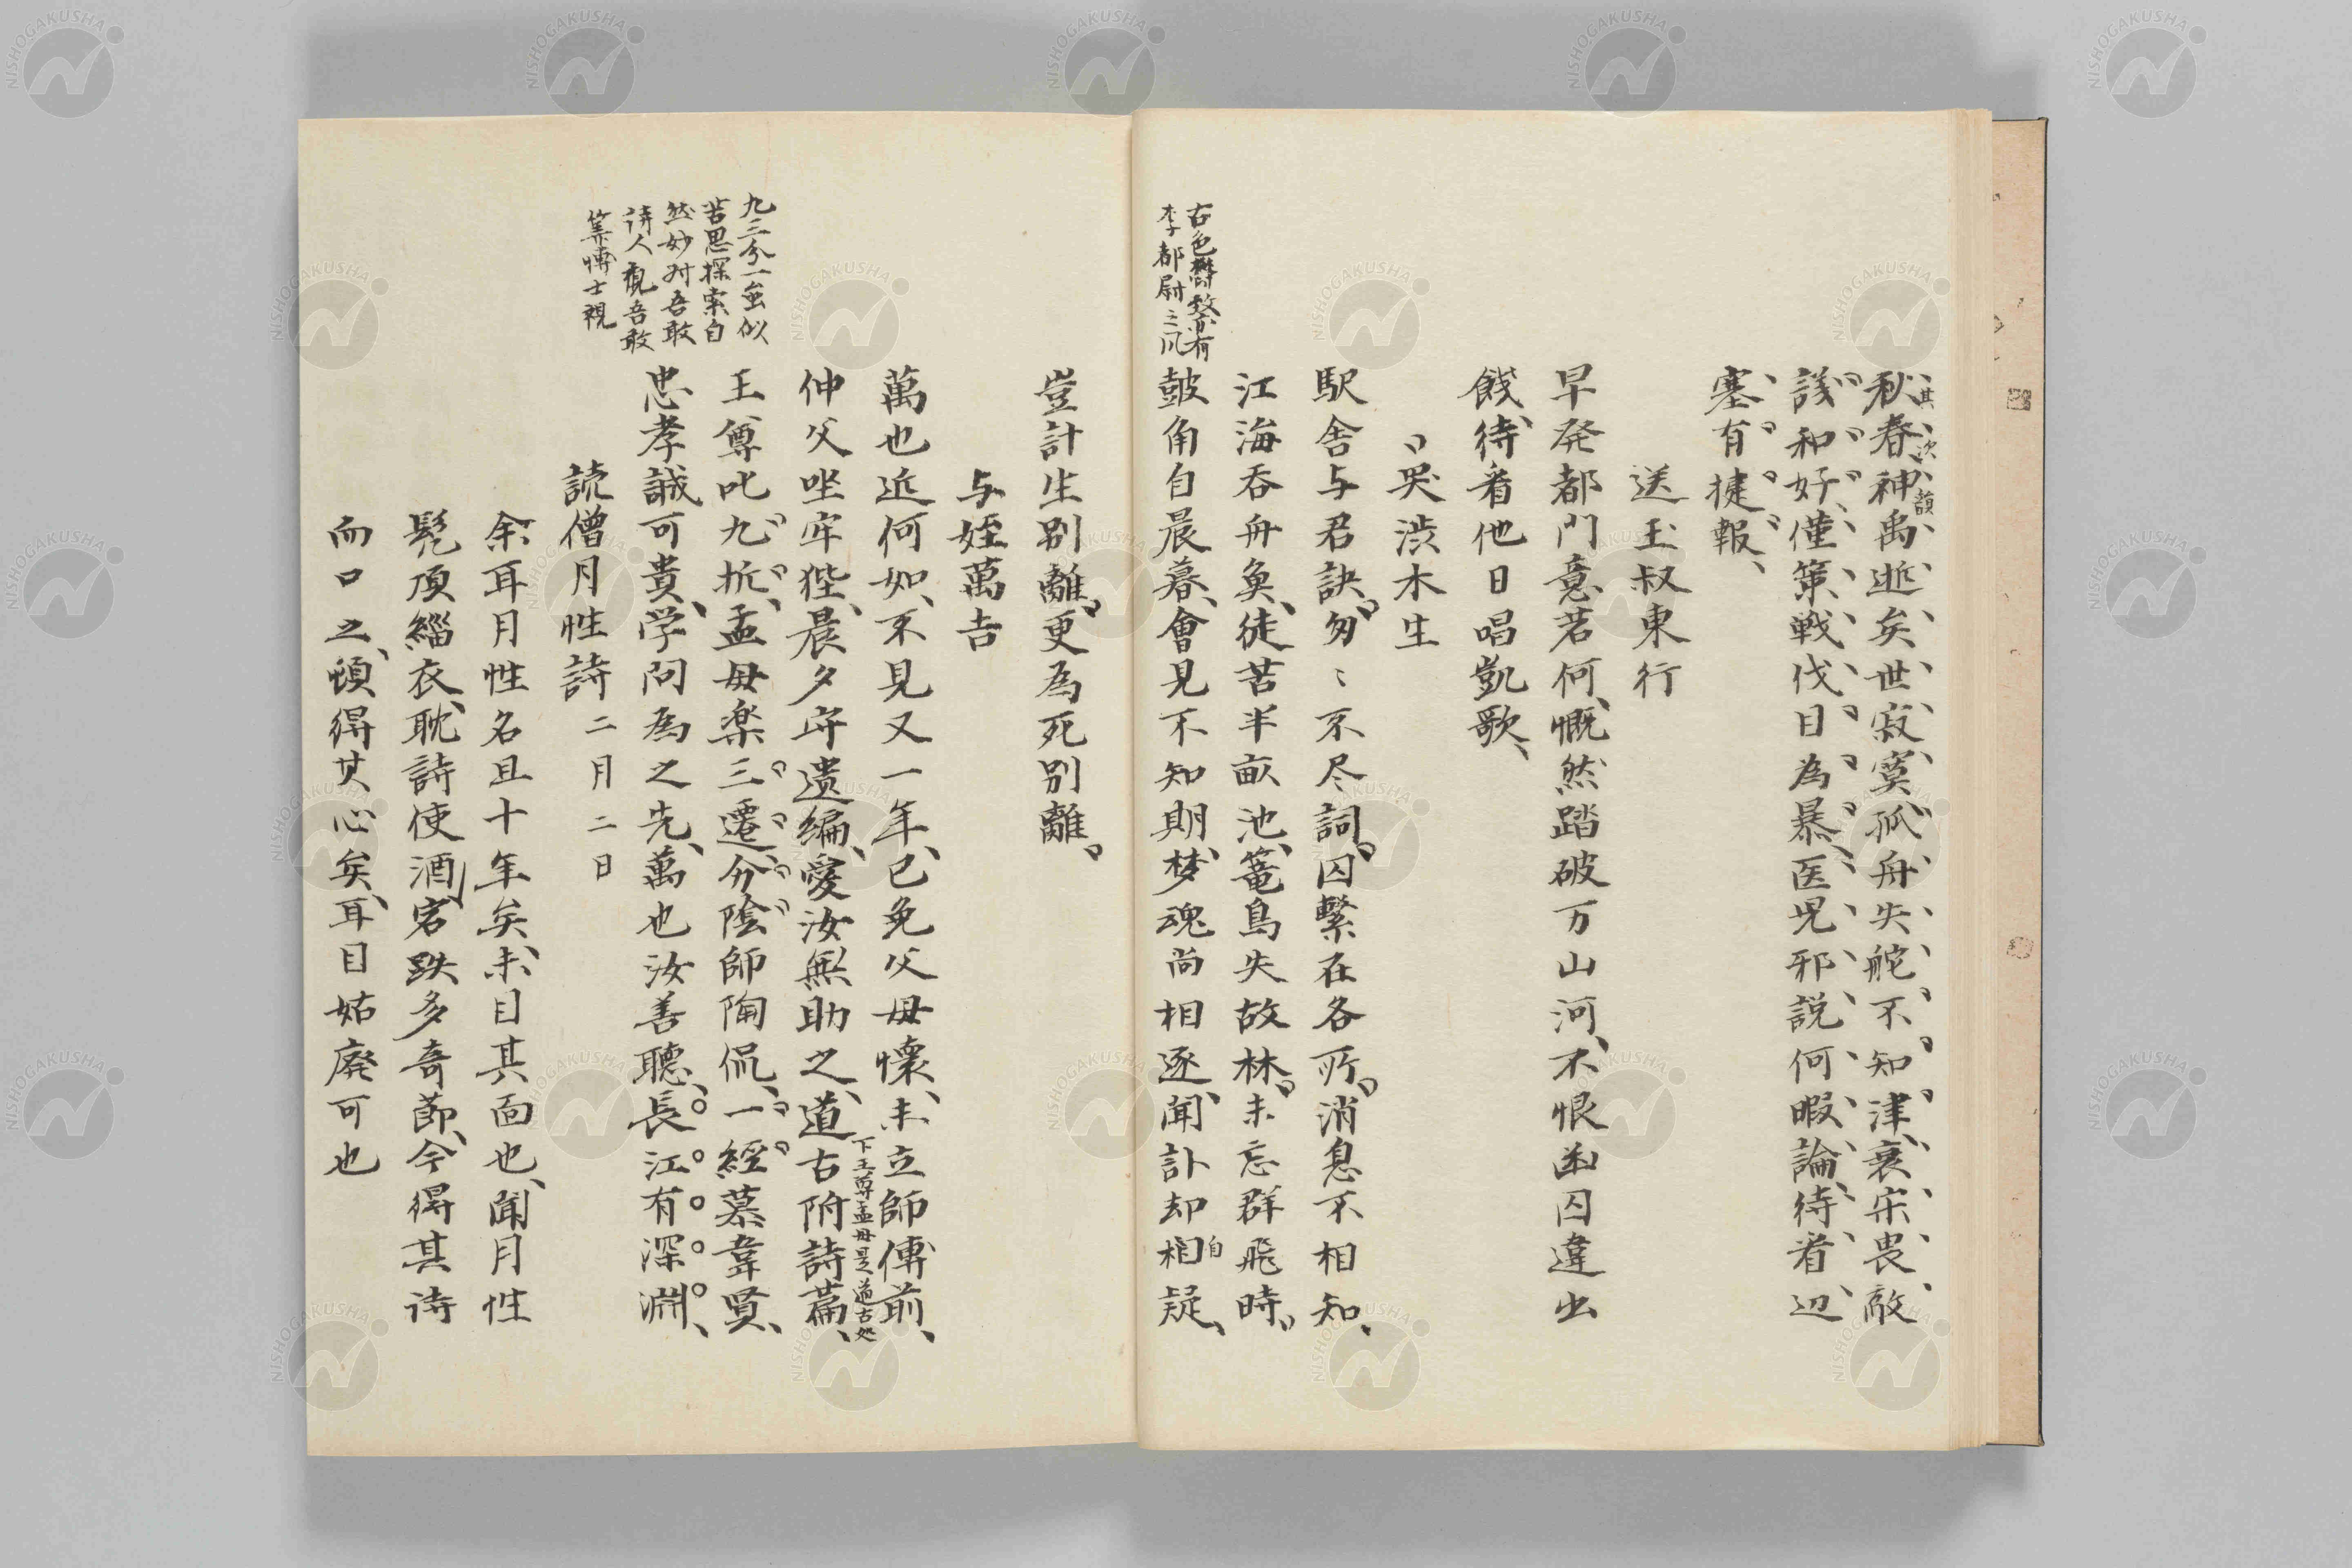 其次韻
秋春神禹逝矣世寂寞孤舟失舵不知津衰宋畏敵
議和好僅策戦伐日為暴医児邪説何暇論待着辺
塞有捷報
送玉叔東行
早発都門意若何慨然踏破万山河不恨函囚違出
餞待看他日唱凱歌
哭渋木生
駅舎与君訣匆〻不尽詞囚繫在各所消息不相知
江海呑舟魚徒苦半畝池篭鳥失故林未忘群飛時
古色欝蒼有
李都尉之風
鼓角自晨暮會見不知期梦魂尚相逐聞訃却相疑
自
豈計生別離更為死別離
与姪萬吉
萬也近何如不見又一年已免父母懐未立師傅前
下王尊孟母是道古処
仲父坐牢狴晨夕守遺編愛汝無助之道古附詩篇
王尊叱九折孟母楽三遷分陰師陶侃一経慕韋賢
九三分一虽似
苦思探索自
然妙対吾敢
詩人視吾敢
筭博士視
忠孝誠可貴学問為之先萬也汝善聴長江有深淵
読僧月性詩 二月二日
余耳月性名且十年矣未目其面也聞月性
髡頂緇衣耽詩使酒宕跌多奇節今得其詩
而口之頓得其心矣耳目姑廃可也